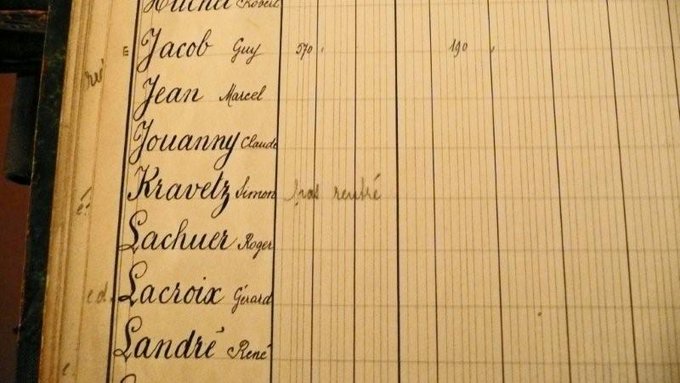 Michel Robert
E Jacob Guy 570 190
Jean Marcel
Jouanny Claude
Kravetz Simon pas rentré
Lachuer Roger
ed. Lacroix Gérard
Landré René